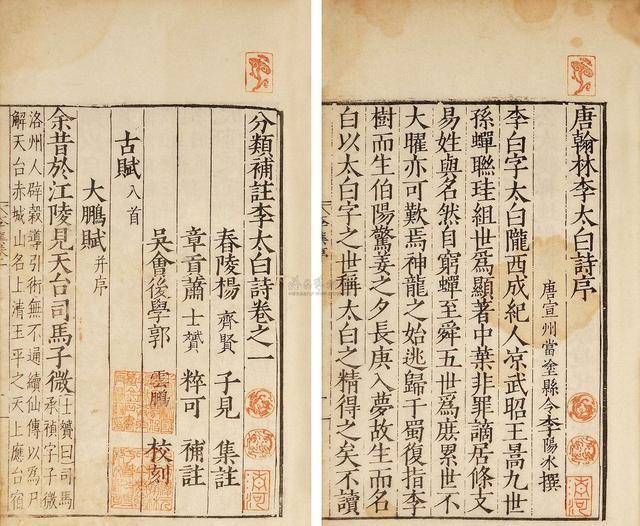 唐翰林李太白詩序
唐宣州當塗縣令李陽冰撰
李白字太白隴西成紀人凉武昭王暠九世
孫蟬聯珪組世爲顯著中葉非罪謫居條支
易姓與名然自窮蟬至舜五世爲庶累世不
大曜亦可歎焉神龍之始逃歸于蜀復指李
樹而生伯陽驚姜之夕長庚入夢故生而名
白以太白字之世稱太白之精得之矣不讀
分類補註李太白詩卷之一
舂陵楊齊賢子見集註
章貢蕭士贇粹可補註
吳會後學郭雲鵬校刻
古賦八首
大鵬賦并序
余昔於江陵見天台司馬子微士贇曰司馬
承禎字子微
洛州人辟穀導引術無不通續仙傳以爲尸
解天台赤城山名上清玉平之天上應台宿